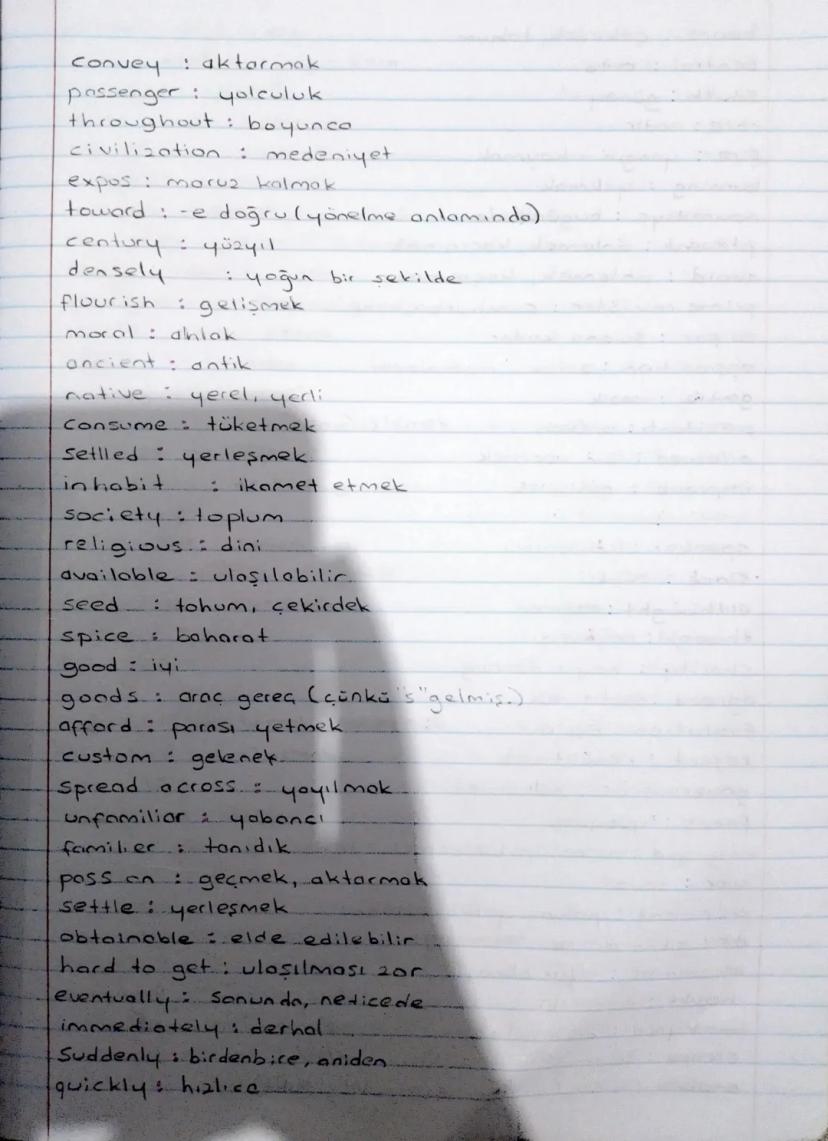 convey : aktarmak
passenger : yolculuk
throughout : boyunca
civilization : medeniyet
expos : maruz kalmak
toward : -e doğru (yönelme anlamında)
century : yüzyıl
densely : yoğun bir şekilde
flourish : gelişmek
moral : ahlak
ancient : antik
native : yerel, yerli
consume : tüketmek
setlled : yerleşmek
inhabit : ikamet etmek
society : toplum
religious : dini
available : ulaşılabilir
seed : tohum, çekirdek
spice : baharat
good : iyi
goods : araç gereç (çünkü "s" gelmiş.)
afford : parası yetmek
custom : gelenek
spread across : yayılmak
unfamiliar : yabancı
familier : tanıdık
pass on : geçmek, aktarmak
settle : yerleşmek
obtainable : elde edilebilir
hard to get : ulaşılması zor
eventually : sonunda, neticede
immediately : derhal
Suddenly : birdenbire, aniden
quickly : hızlıca